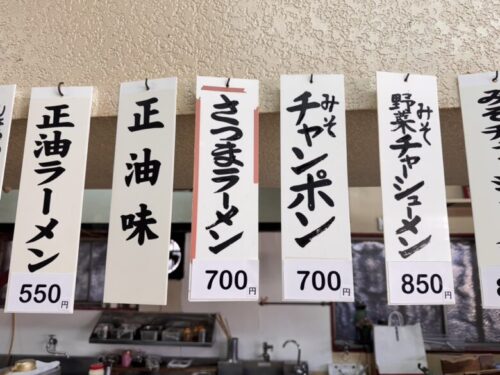 正油ラーメン
550円
正油味
さつまラーメン
700円
みそ
チャンポン
700円
みそ
野菜チャーシューメン
850円